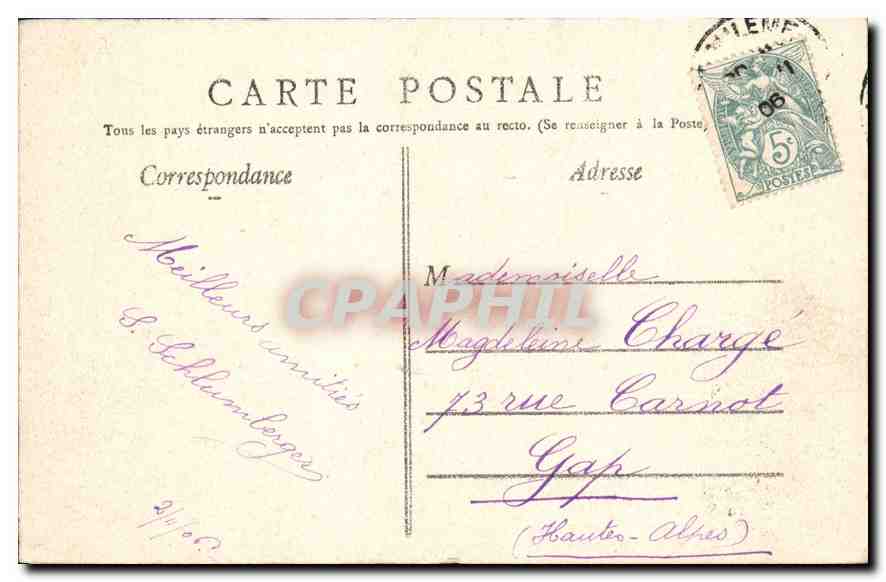 CARTE POSTALE
Tous les pays étrangers n'acceptent pas la correspondance au recto. (Se renseigner à la Poste)
Correspondance
Adresse
06
5c
POSTES
Meilleurs amitiés
S. Schlumberger
2/11/06
Mademoiselle
Magdeleine Chargé
73 rue Carnot
Gap
(Hautes-Alpes)
CPAPHIL